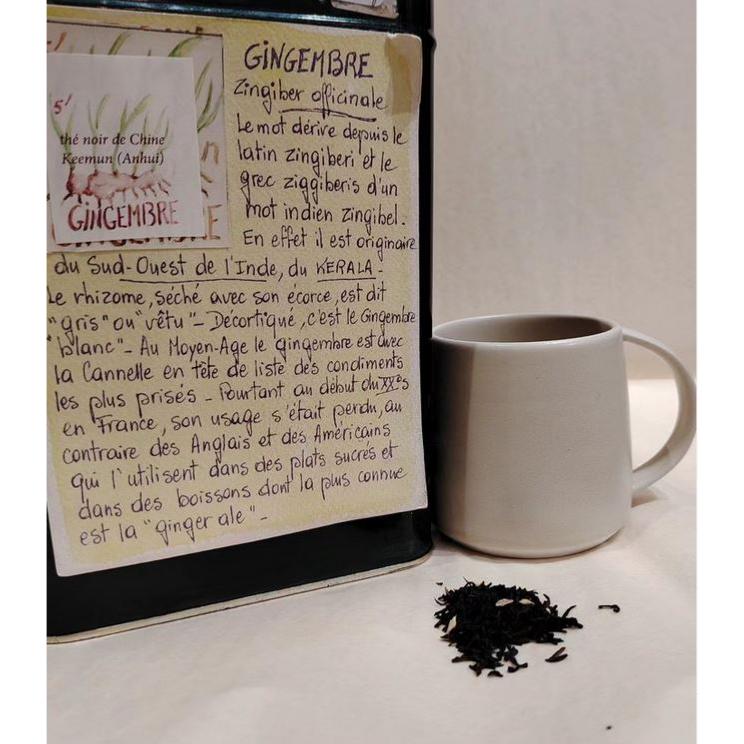 5'
thé noir de Chine
Keemun (Anhui)
GINGEMBRE
GINGEMBRE
Zingiber officinale
Le mot dérive depuis le
latin zingiberi et le
grec ziggiberis d'un
mot indien zingibel.
En effet il est originaire
du Sud-Ouest de l'Inde, du KERALA -
Le rhizome, séché avec son écorce, est dit
"gris" ou "vêtu" - Décortiqué, c'est le Gingembre
"blanc" - Au Moyen-Age le gingembre est avec
la Cannelle en tête de liste des condiments
les plus prisés - Pourtant au début du XX°s
en France, son usage s'était perdu, au
contraire des Anglais et des Américains
qui l'utilisent dans des plats sucrés et
dans des boissons dont la plus connue
est la "ginger ale" -